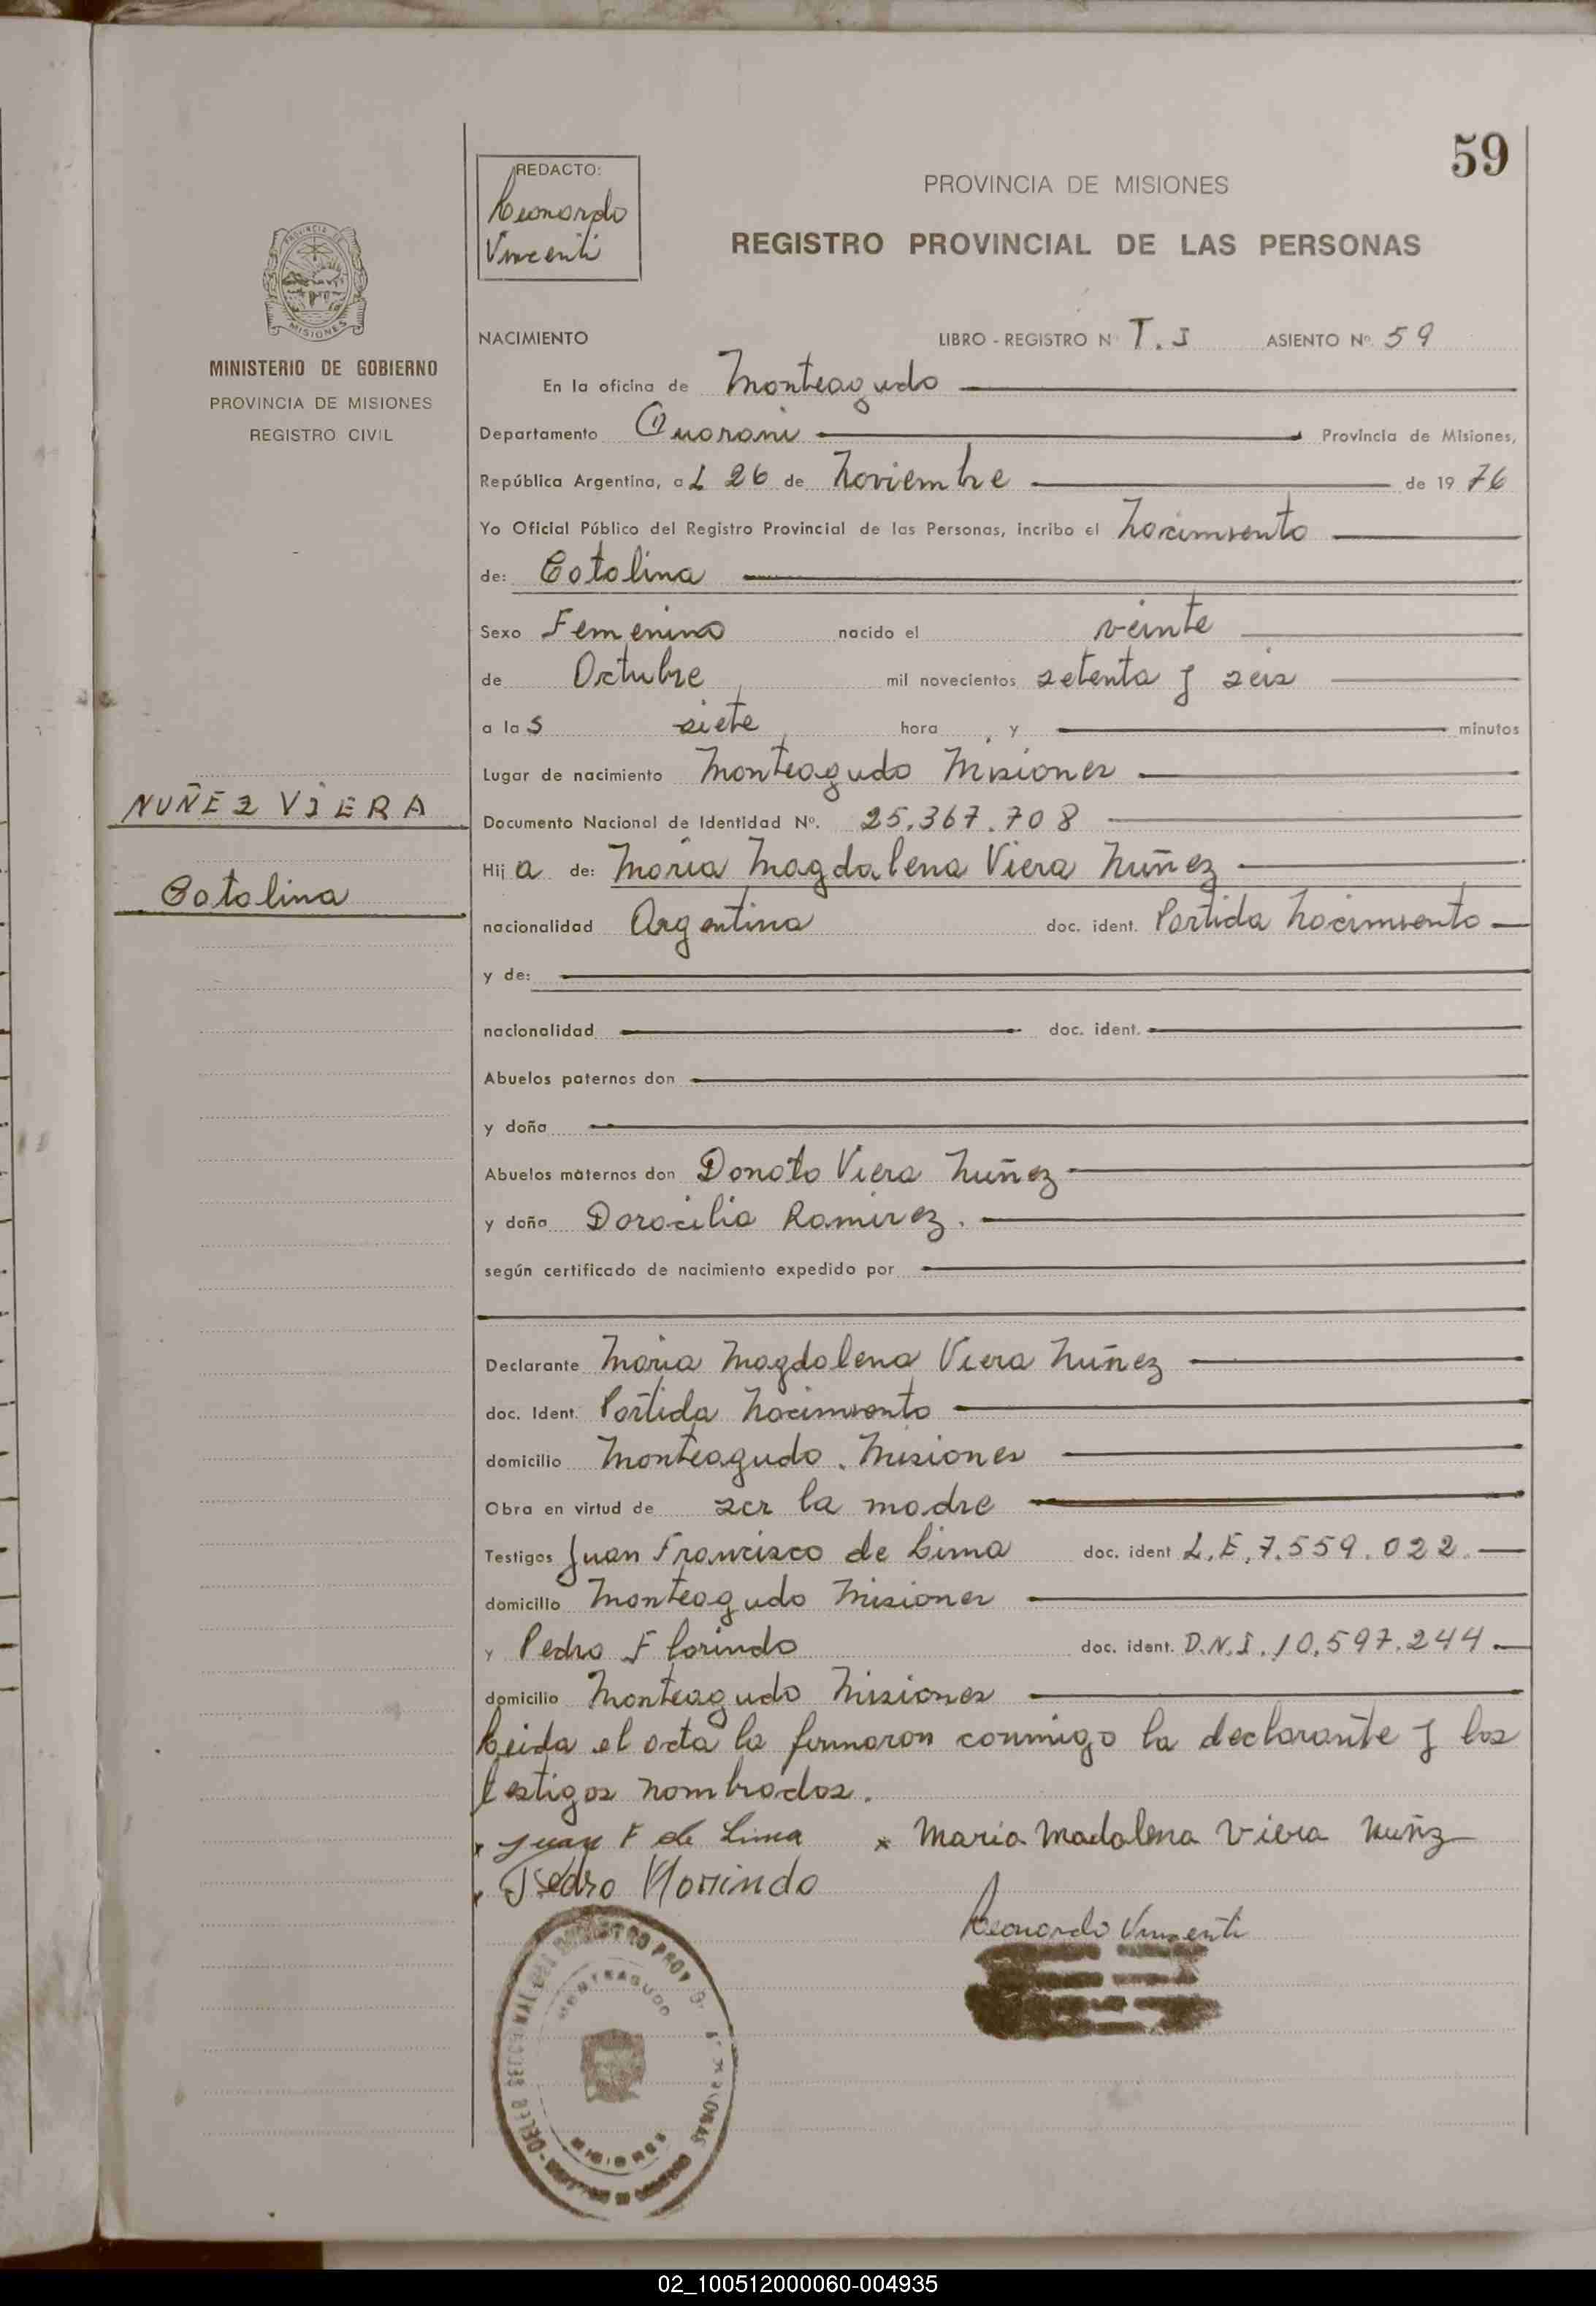 59
REDACTO:
Leonardo
Vincenti
PROVINCIA DE MISIONES
REGISTRO PROVINCIAL DE LAS PERSONAS
PROVINCIA DE
MISIONES
MINISTERIO DE GOBIERNO
PROVINCIA DE MISIONES
REGISTRO CIVIL
NACIMIENTO LIBRO - REGISTRO Nº T. I ASIENTO Nº. 59
En la oficina de Monteagudo
Departamento Guarani Provincia de Misiones,
República Argentina, a L 26 de Noviembre de 19 76
Yo Oficial Público del Registro Provincial de las Personas, incribo el Nacimiento
de: Catalina
Sexo Femenino nacido el veinte
de Octubre mil novecientos setenta y seis
a la s siete hora y minutos
Lugar de nacimiento Monteagudo Misiones
NUÑEZ VIERA
Documento Nacional de Identidad Nº. 25.367.708
Hij a de: Maria Magdalena Viera Nuñez
Catalina
nacionalidad Argentina doc. ident. Partida Nacimiento
y de:
nacionalidad doc. ident.
Abuelos paternos don
y doña
Abuelos maternos don Donato Viera Nuñez
y doña Doracilia Ramirez.
según certificado de nacimiento expedido por
Declarante Maria Magdalena Viera Nuñez
doc. Ident. Partida Nacimiento
domicilio Monteagudo. Misiones
Obra en virtud de ser la madre
Testigos Juan Francisco de Lima doc. ident L.E. 7.559.022.
domicilio Monteagudo Misiones
y Pedro Florindo doc. ident. D.N.I. 10.597.244
domicilio Monteagudo Misiones
Leida el acta la firmaron conmigo la declarante y los
testigos nombrados.
x Juan F de Lima x Maria Madalena Viera Nuñz
x Pedro Florindo
Leonardo Vincenti
MONTEAGUDO
MISIONES
02_100512000060-004935